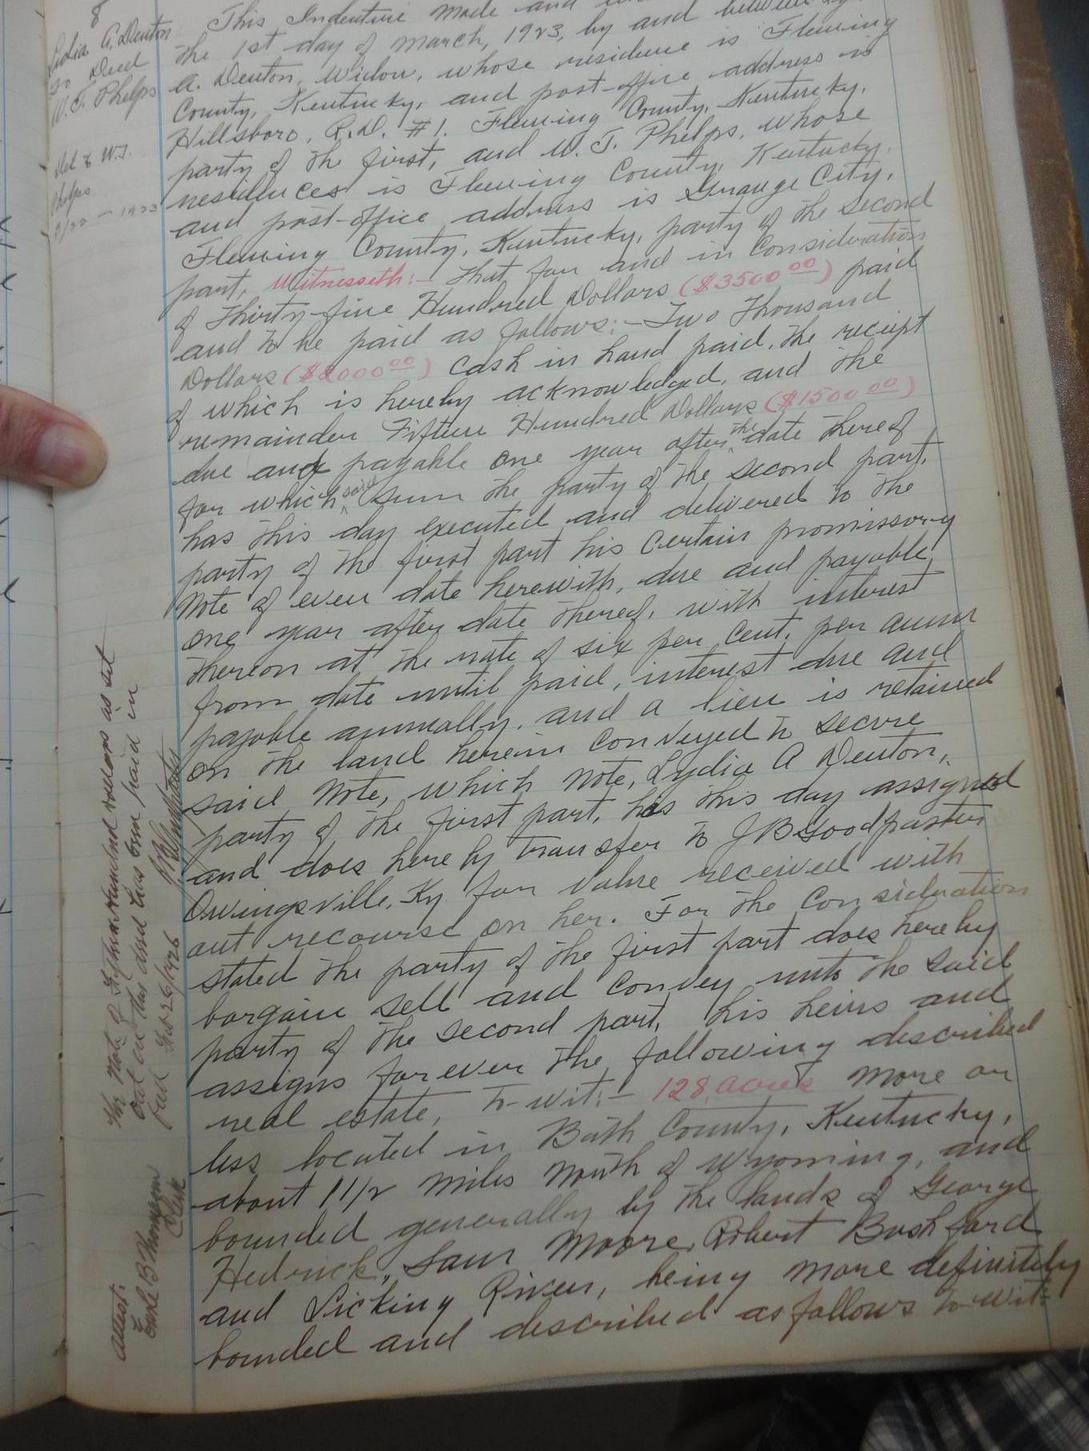 8
Lydia A. Denton
To Deed
W. T. Phelps
Del to W.T.
Phelps
This Indenture made and
the 1st day of March, 1923, by and between
A. Denton, Widow, whose residence is Fleming
County, Kentucky, and post-office address is
Hillsboro, R.D. #1. Fleming County, Kentucky,
party of the first, and W. T. Phelps, whose
residences is Fleming County, Kentucky,
and post-office address is Grange City,
Fleming County, Kentucky, party of the second
part, Witnesseth:- That for and in consideration
of Thirty-five Hundred Dollars ($3500 00) paid
and to be paid as follows:- Two Thousand
Dollars ($2000 00) cash in hand paid, the receipt
of which is hereby acknowledged, and the
remainder Fifteen Hundred Dollars ($1500 00)
due and payable one year after the date thereof
for which said sum the party of the second part,
has this day executed and delivered to the
party of the first part his certain promissory
Note of even date herewith, due and payable
one year after date thereof, with interest
thereon at the rate of six per cent, per annum
from date until paid, interest due and
payable annually, and a lien is retained
on the land herein conveyed to secure
said Note, which Note, Lydia A Denton,
party of the first part, has this day assigned
and does hereby transfer to J B Goodpaster
Owingsville, Ky for value received with
out recourse on her. For the consideration
stated the party of the first part does hereby
bargain sell and convey unto the said
party of the second part, his heirs and
assigns forever the following described
real estate, to-wit:- 128 acres more or
less located in Bath County, Kentucky,
about 1 1/2 miles North of Wyoming, and
bounded generally by the lands of George
Hedrick, Sam Moore, Robert Bashford
and Licking River, being more definitely
bounded and described as follows to-wit:
The Note of Fifteen Hundred dollars as set
out in this deed has been paid in
full Feb 26/1926
Attest:
Earle B Thompson
Clerk